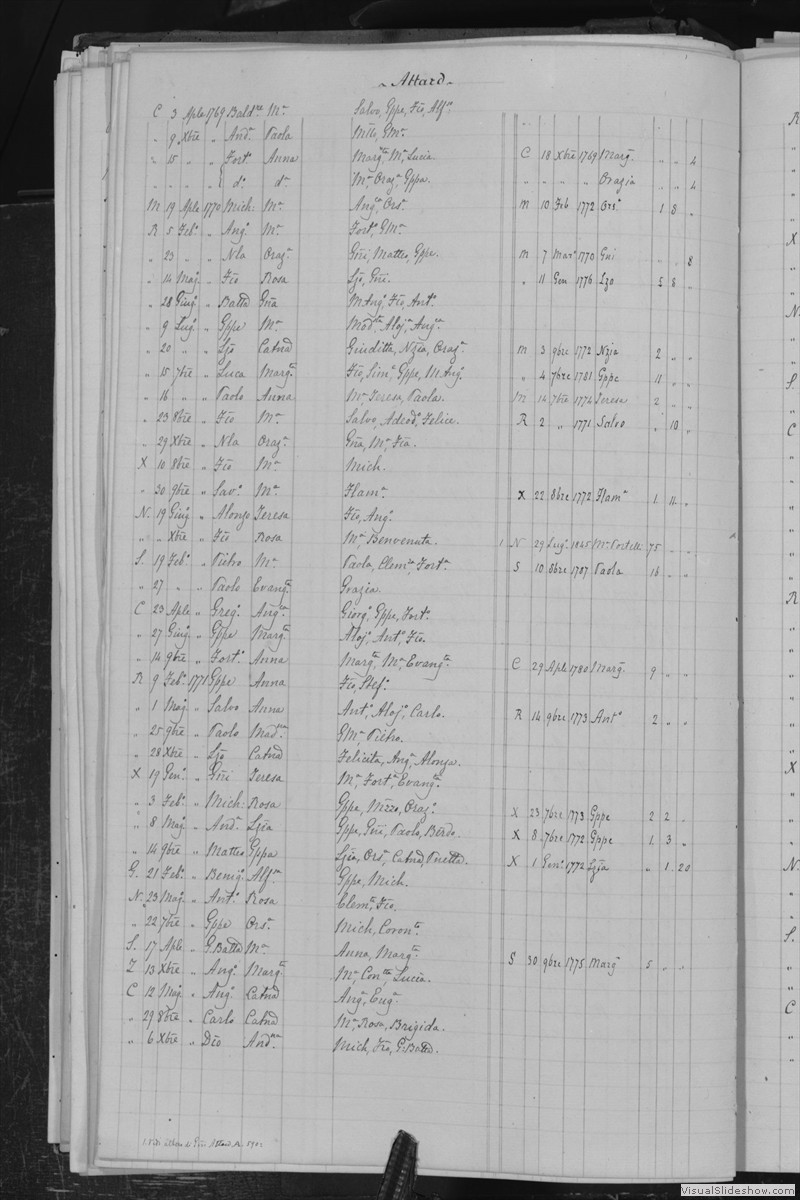 Attard
C 3 Aple 1769 Bald.re M.a Salvo, Gppe, Fco, Alf.a
„ 9 Xbre „ And.a Paola G.M.a
„ 15 „ „ Fort.o Anna Marg.ta M.a Lucia C 18 Xbre 1769 Marg. „ „ 4
„ „ „ „ d.o d.a M.a Oraz.a Gppa. „ „ „ „ Orazia „ „ 4
M 19 Aple 1770 Mich: M.a Ang.a Ors.a M 10 Feb 1772 Ors.a 1 8 „
R 5 Feb.o „ Ang.o M.a Fort.o G.M.a
„ 23 „ „ Nla Oraz.a Gni, Matteo, Gppe. M 7 Mar.o 1770 Gni „ „ 8
„ 14 Mag. „ Fco Rosa Lzo, Gni. „ 11 Gen 1776 Lzo 5 8 „
„ 28 Giug.o „ Batta Gna M.Ang.o, Fco, Ant.o
„ 9 Lug.o „ Gppe M.a Mod.ta Aloj.a Ang.ca
„ 20 „ „ Lzo Catnd Giuditta, Nzia, Oraz.o M 3 9bre 1772 Nzia 2 „ „
„ 15 7bre „ Luca Marg.ta Fco, Sim.e Gppe, M.Ang.o „ 4 7bre 1781 Gppe 11 „ „
„ 16 „ „ Paolo Anna M.a Teresa, Paola. M 14 7bre 1774 Teresa 2 „ „
„ 23 8bre „ Fco M.a Salvo, Adeod.o Felice. R 2 „ 1771 Salvo „ 10 „
„ 29 Xbre „ Nla Oraz.a Gna, M.a Fca.
X 10 8bre „ Fco M.a Mich.
„ 30 9bre „ Sav.o M.a Flam.a X 22 8bre 1772 Flam.a 1 11 „
N. 19 Giug. „ Alonzo Teresa Fco, Ang.o
„ „ Xbre „ Fco Rosa M.a Benvenuta. 1 N 29 Lug.o 1845 M.a Portelli 75 „ „
S. 19 Feb.o „ Pietro M.a Paola, Clem.a, Fort.a S 10 8bre 1787 Paola 16 „ „
„ 27 „ „ Paolo Evang.ta Grazia.
C 23 Aple „ Greg.o Ang.ca Giorg.o Gppe, Fort.o
„ 27 Giug.o „ Gppe Marg.ta Aloj.o Ant.o Fco.
„ 14 9bre „ Fort.o Anna Marg.ta M.a Evang.ta C 29 Aple 1780 Marg. 9 „ „
R 9 Feb.o 1771 Gppe Anna Fco, Stef.o
„ 1 Mag. „ Salvo Anna Ant.o Aloj.o Carlo. R 14 9bre 1773 Ant.o 2 „ „
„ 25 9bre „ Paolo Mad.na G.M.a Pietro.
„ 28 Xbre „ Lzo Catnd Felicita, Ang.a Alonza.
X 19 Gen.o „ Gni Teresa M.a Fort.a Evang.ta
„ 3 Feb.o „ Mich: Rosa Gppe, Nzzo, Oraz.o X 23 7bre 1773 Gppe 2 2 „
„ 8 Mag. „ And.a Lzia Gppe, Gni, Paolo, Birdo. X 8 7bre 1772 Gppe 1 3 „
„ 14 9bre „ Matteo Gppa Lzia, Ors.a Catnd, X 1 Gen.o 1772 Lzia „ 1 20
G. 21 Feb.o „ Benig.o Alf.a Gppe, Mich.
N. 23 Mag. „ Ant.o Rosa Clem.te Fco.
„ 22 7bre „ Gppe Ors.a Mich, Coron.ta
S. 17 Aple „ G.Batta M.a Anna, Marg.ta S 30 9bre 1775 Marg. 5 „ „
Z 13 Xbre „ Ang.o Marg.ta M.a Con.ta Lucia.
C 12 Mag. „ Ang.o Catnd Ang.a Eug.a
„ 29 8bre „ Carlo Catnd M.a Rosa, Brigida.
„ 6 Xbre „ Dco And.na Mich, Fco, G.Batta.
VisualSlideshow.com